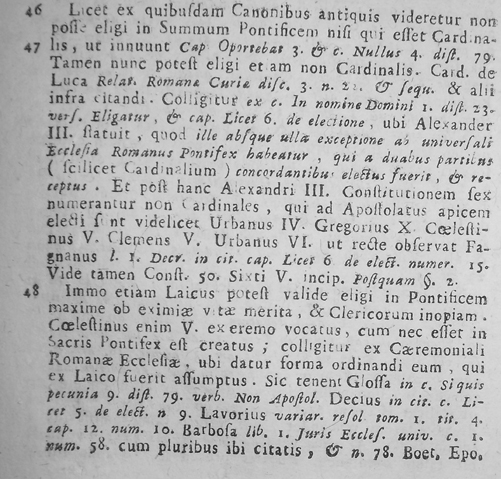 46 Licet ex quibuſdam Canonibus antiquis videretur non
poſſe eligi in Summum Pontificem niſi qui eſſet Cardina-
47 lis, ut innuunt Cap. Oportebat 3. & c. Nullus 4. diſt. 79.
Tamen nunc poteſt eligi etiam non Cardinalis. Card. de
Luca Relat. Romanæ Curiæ diſc. 3. n. 22. & ſequ. & alii
infra citandi. Colligitur ex c. In nomine Domini 1. diſt. 23.
verſ. Eligatur, & cap. Licet 6. de electione, ubi Alexander
III. ſtatuit, quod ille abſque ulla exceptione ab univerſali
Eccleſia Romanus Pontifex habeatur, qui a duabus partibus
( ſcilicet Cardinalium ) concordantibus electus fuerit, & re-
ceptus. Et poſt hanc Alexandri III. Conſtitutionem ſex
numerantur non Cardinales, qui ad Apoſtolatus apicem
electi ſunt videlicet Urbanus IV. Gregorius X. Cœleſti-
nus V. Clemens V. Urbanus VI. ut recte obſervat Fa-
gnanus l. 1. Decr. in cit. cap. Licet 6 de elect. numer. 15.
Vide tamen Conſt. 50. Sixti V. incip. Poſtquam §. 2.
48 Immo etiam Laicus poteſt valide eligi in Pontificem
maxime ob eximiæ vitæ merita, & Clericorum inopiam.
Cœleſtinus enim V. ex eremo vocatus, cum nec eſſet in
Sacris Pontifex eſt creatus; colligitur ex Cæremoniali
Romanæ Eccleſiæ, ubi datur forma ordinandi eum, qui
ex Laico fuerit aſſumptus. Sic tenent Gloſſa in c. Si quis
pecunia 9. diſt. 79. verb. Non Apoſtol. Decius in cit. c. Li-
cet 5. de elect. n 9. Lavorius variar. reſol tom. 1. tit. 4.
cap. 12. num. 10. Barboſa lib. 1. Juris Eccleſ. univ. c. 1.
num. 58. cum pluribus ibi citatis, & n. 78. Boet. Epo,